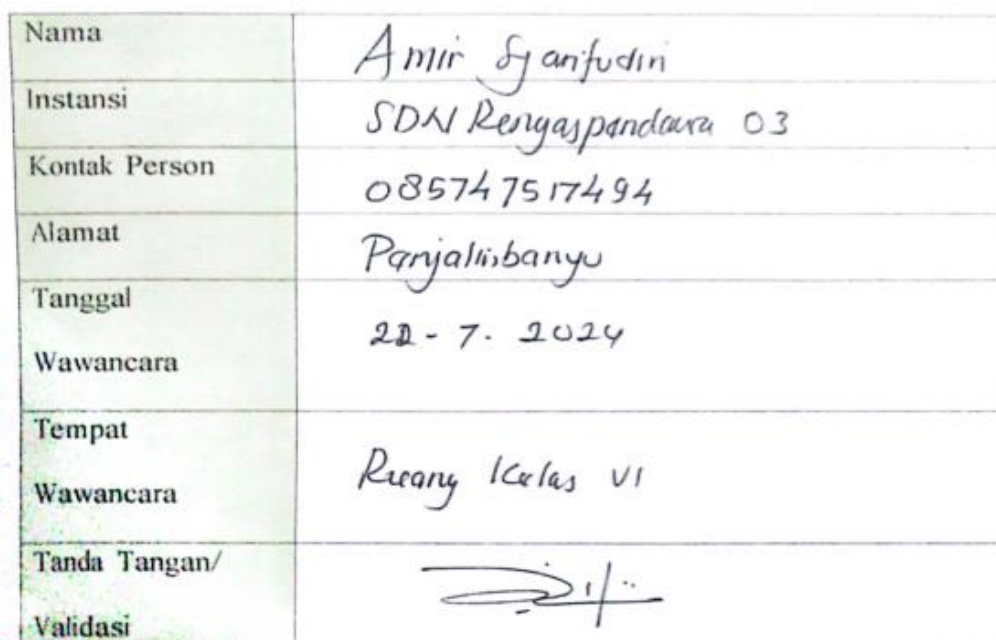 Nama
Amir Syarifudin
Instansi
SDN Rengaspendawa 03
Kontak Person
085747517494
Alamat
Panjalinbanyu
Tanggal
Wawancara
22 - 7. 2024
Tempat
Wawancara
Ruang Kelas VI
Tanda Tangan/
Validasi